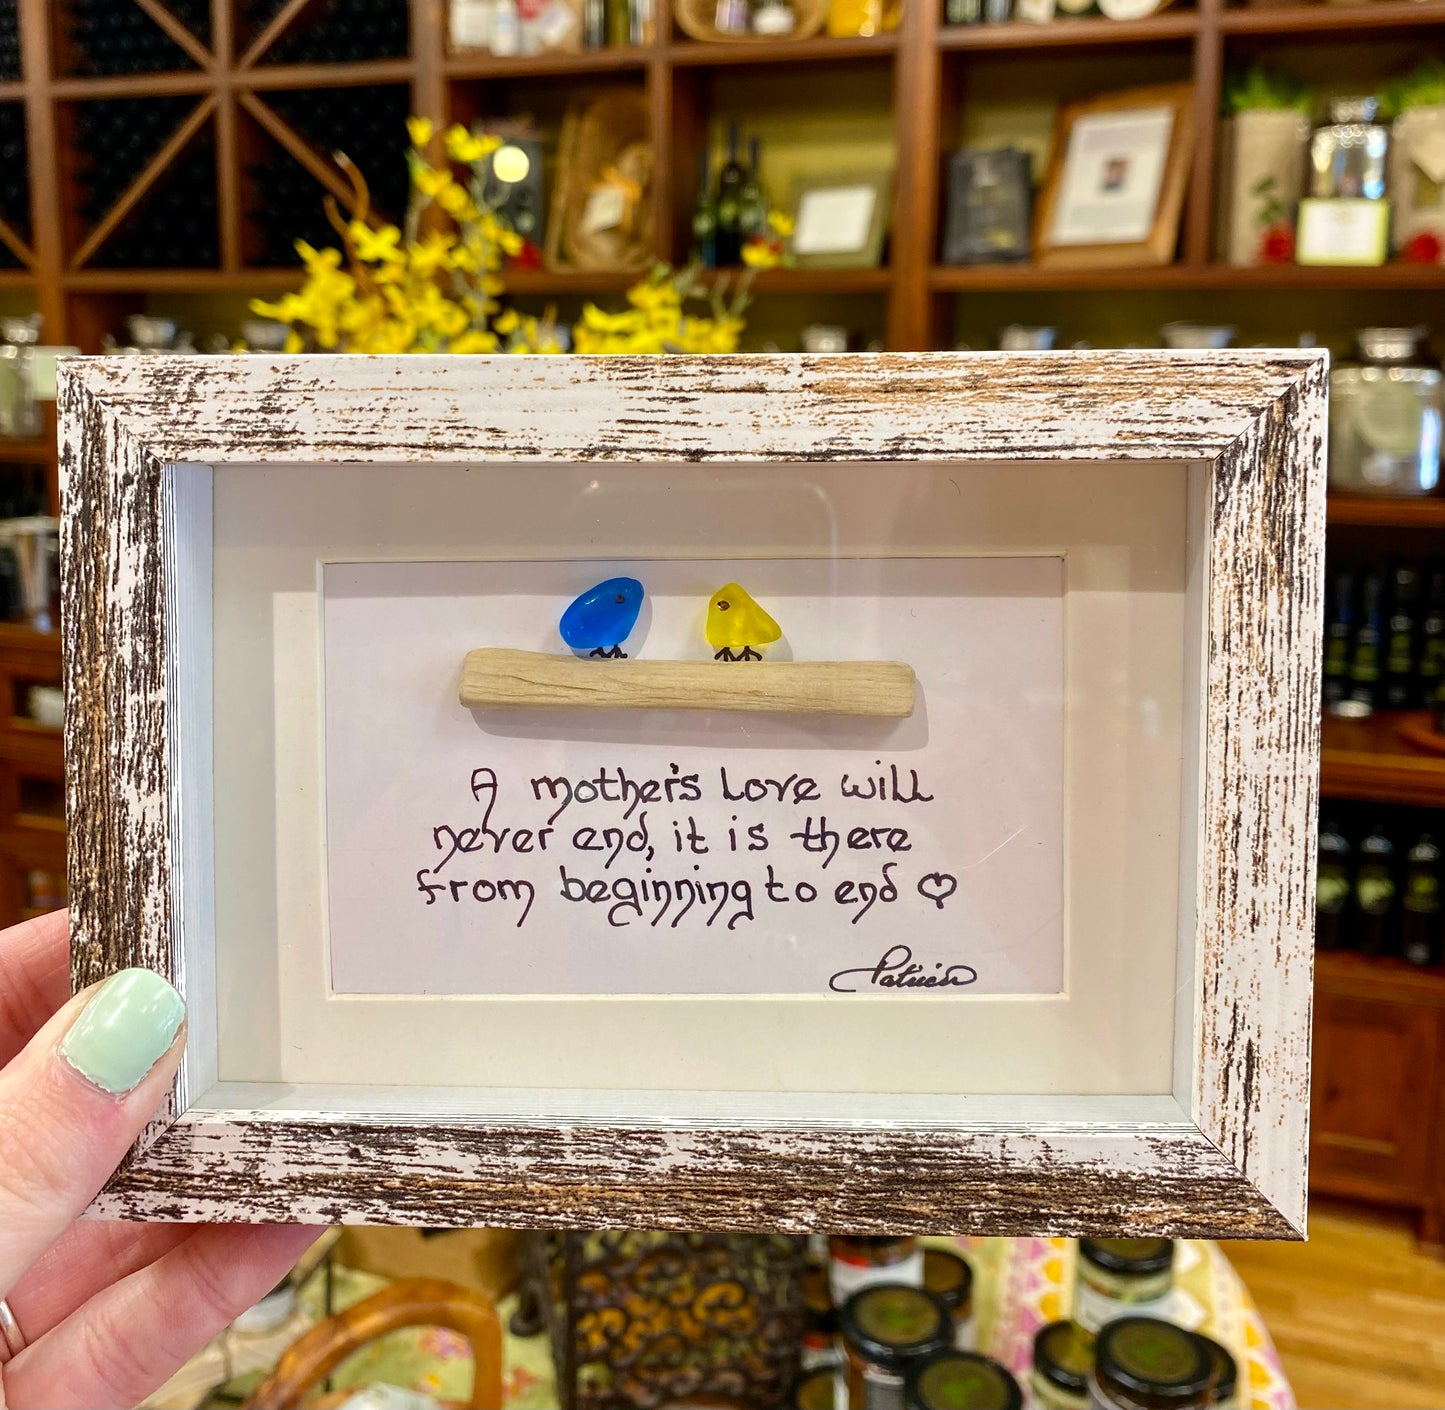 A mother's Love will
never end, it is there
from beginning to end ♡
Patricia